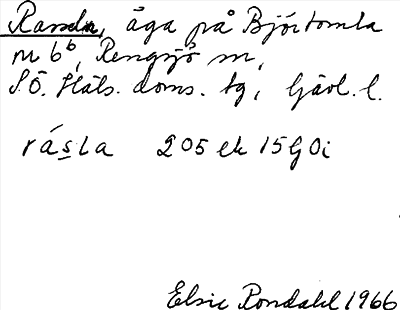 Rassla, åga på Björtomta
nr 6b, Rengsjö sn,
S.Ö. Häls. doms. tg, Gävl. l.
rásla 205 ek 15G0i
Elsie Rondahl 1966